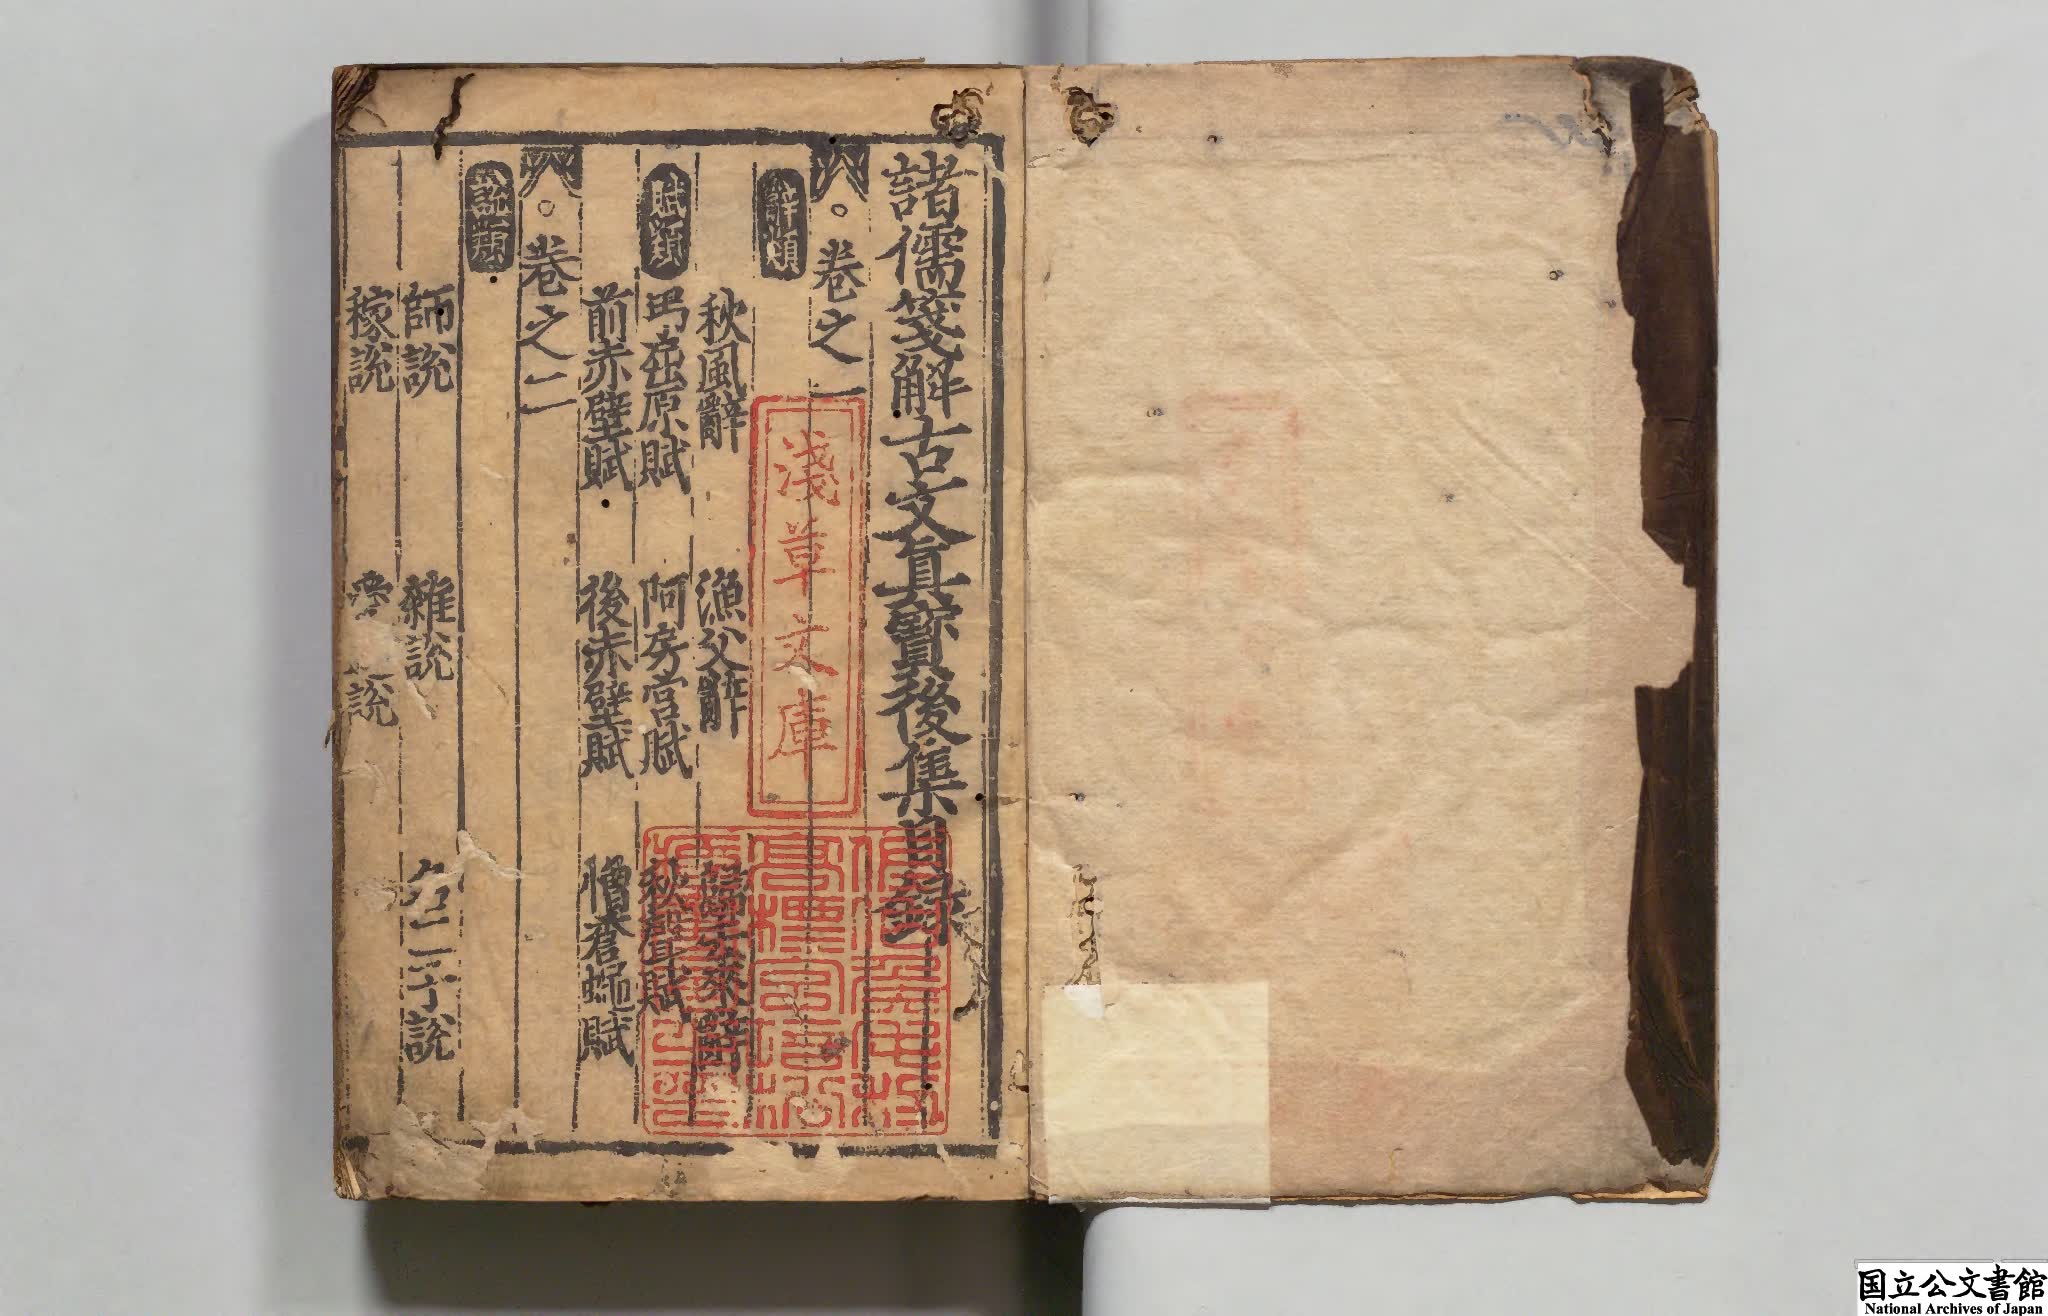 諸儒箋解古文真寳後集目録
卷之一
辞類
秋風辭 漁父辭 歸去來辭
賦類
吊屈原賦 阿房宮賦 秋聲賦
前赤壁賦 後赤壁賦 憎蒼蠅賦
卷之二
說類
師說 雜說 名二子說
稼說 說
淺草文庫
国立公文書館
National Archives of Japan